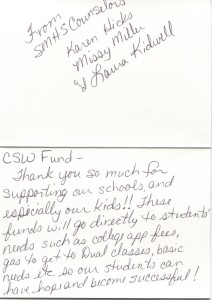 From
SMHS Counselors
Karen Hicks
Missy Miller
& Laura Kidwell
CSW Fund -
Thank you so much for
supporting our schools, and
especially our kids!! These
funds will go directly to students'
needs such as college app fees,
gas to get to Dual classes, basic
needs etc so our students can
have hope and become successful!